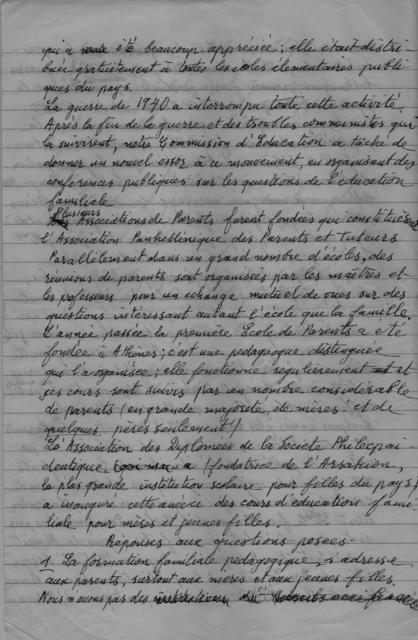 qui a été beaucoup appréciée; elle était distri-
buée gratuitement à toutes les écoles élémentaires publi-
ques du pays.
La guerre de 1940 a interrompu toute cette activité.
Après la fin de la guerre et des troubles communistes qui
la suivirent, notre Commission d'Education a tâché de
donner un nouvel essor à ce mouvement, en organisant des
conférences publiques sur les questions de l'éducation
familiale
Plusieurs Associations de Parents furent fondées que constituèrent
l'Association Panhellenique des Parents et Tuteurs
Parallèlement dans un grand nombre d'écoles, des
réunions de parents sont organisées par les maîtres et
les professeurs pour un échange mutuel de vues sur des
questions intéressant autant l'école que la famille.
L'année passée la première Ecole de Parents a été
fondée à Athènes; c'est une pédagogue distinguée
qui l'organise; elle fonctionne régulièrement et
ses cours sont suivis par un nombre considérable
de parents (en grande majorité de mères! et de
quelques pères seulement!)
L'Association des Diplomées de la Société Philecpai-
deutique, (fondatrice de l'Arsakion,
la plus grande institution scolaire pour filles du pays)
a inauguré cette année des cours d'éducation fami-
liale pour mères et jeunes filles.
Réponses aux questions posées.
1. La formation familiale pédagogique, s'adresse
aux parents, surtout aux mères et aux jeunes filles.
Nous n'avons pas des